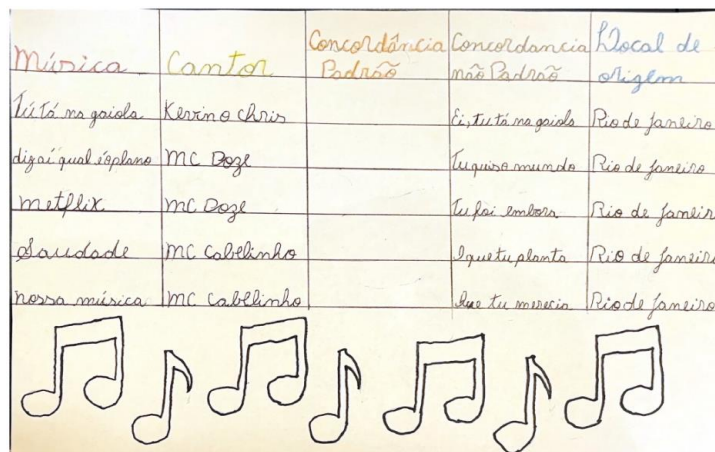 Música Cantor Concordância Padrão Concordancia não Padrão Local de origem
Tú tá na gaiola Kevin o chris Ei, tu tá na gaiola Rio de Janeiro
diz aí qual é o plano MC Doze Tu quis o mundo Rio de Janeiro
netflix MC Doze Tu foi embora Rio de Janeir
Saudade MC Cabelinho O que tu planta Rio de Janeiro
nossa música MC Cabelinho Que tu merecia Rio de Janeiro